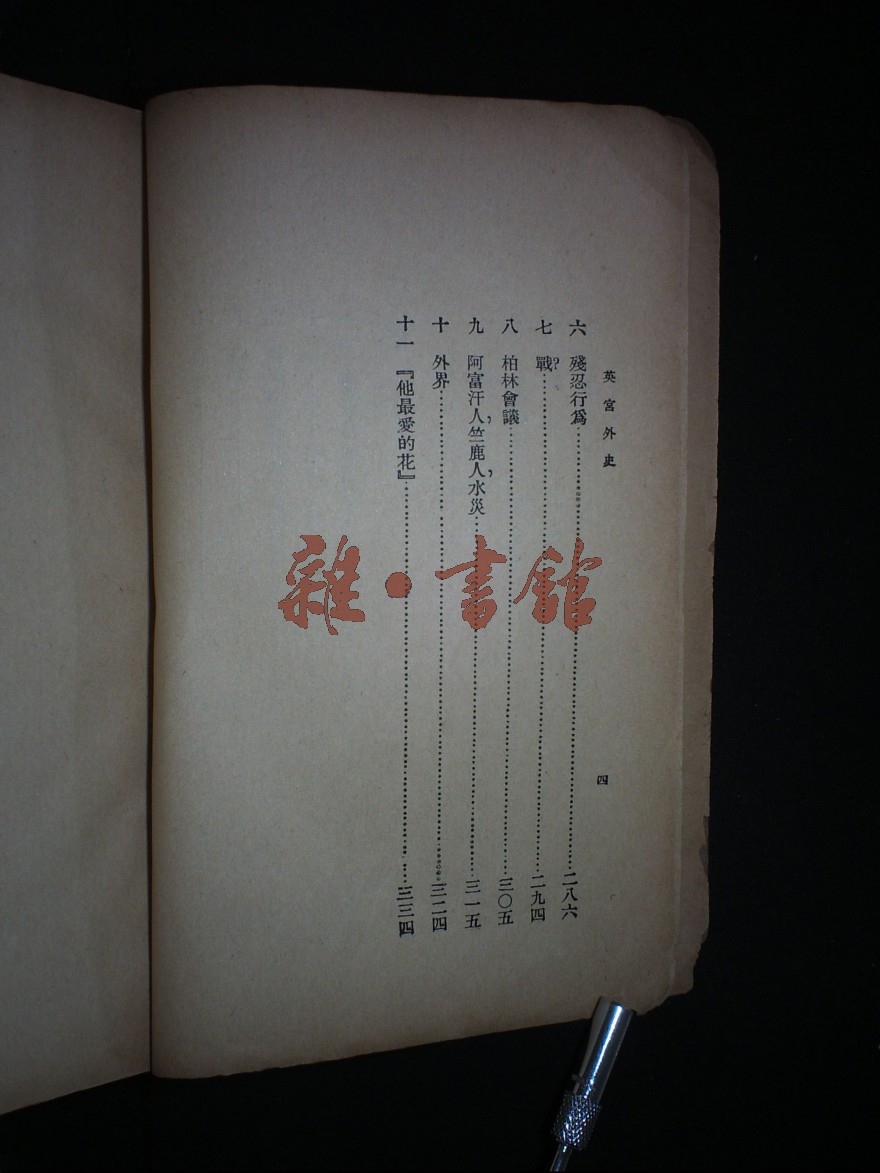 英宮外史
六 殘忍行爲……二八六
七 戰?……二九四
八 柏林會議……三〇五
九 阿富汗人，竺鹿人，水災……三一五
十 外界……三二四
十一 『他最愛的花』……三三四
四
雜·書館